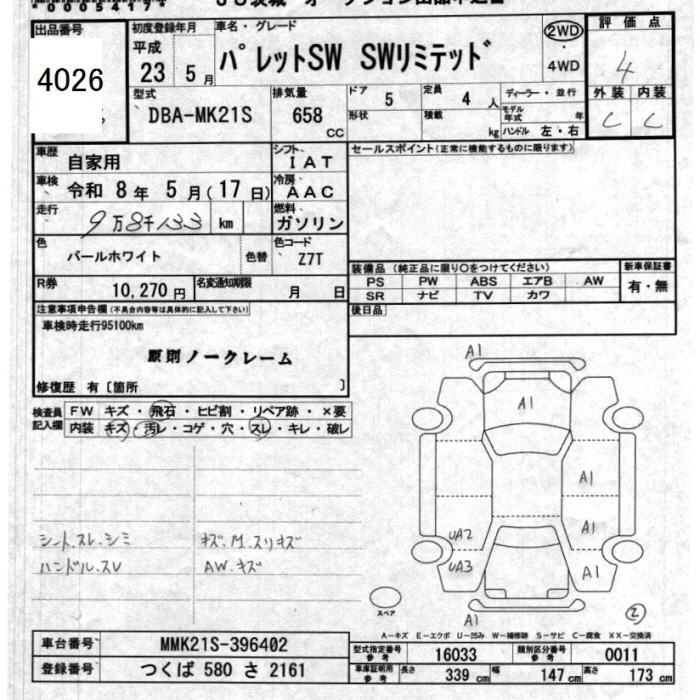 *00054171*
出品番号
4026
初度登録年月
平成
23 5月
車名・グレード
パレットSW SWリミテッド
2WD
・
4WD
評価点
4
外装 内装
C C
型式
DBA-MK21S
排気量
658
CC
ドア 5
形状
定員 4 人
積載 kg
ディーラー・並行
モデル年式 年
ハンドル 左・右
車歴
自家用
シフト
IAT
車検
令和 8年 5月(17日)
冷房
AAC
走行
9万8千133 km
燃料
ガソリン
色
パールホワイト
色替
色コード
Z7T
R券
10,270円
名変通知期限
月 日
セールスポイント(正常に機能するものに限ります)
装備品 (純正品に限り○をつけてください)
PS PW ABS エアB AW
SR ナビ TV カワ
新車保証書
有・無
後日品
注意事項申告欄(不具合内容等は具体的に記入して下さい)
車検時走行95100km
原則ノークレーム
修復歴 有〔箇所 〕
検査員
記入欄
FW キズ・飛石・ヒビ割・リペア跡・×要
内装 キズ・汚レ・コゲ・穴・スレ・キレ・破レ
シートスレ.シミ
ハンドルスレ
キズ.M.スリキズ
AW.キズ
A1
A1
A1
A1
UA2
UA3
A1
A1
スペア
2
A―キズ E―エクボ U―凹み W―補修跡 S―サビ C―腐食 XX―交換済
車台番号
MMK21S-396402
登録番号
つくば 580 さ 2161
型式指定番号
参考
16033
類別区分番号
参考
0011
車庫証明用
参考
長さ 339 cm
幅 147 cm
高さ 173 cm